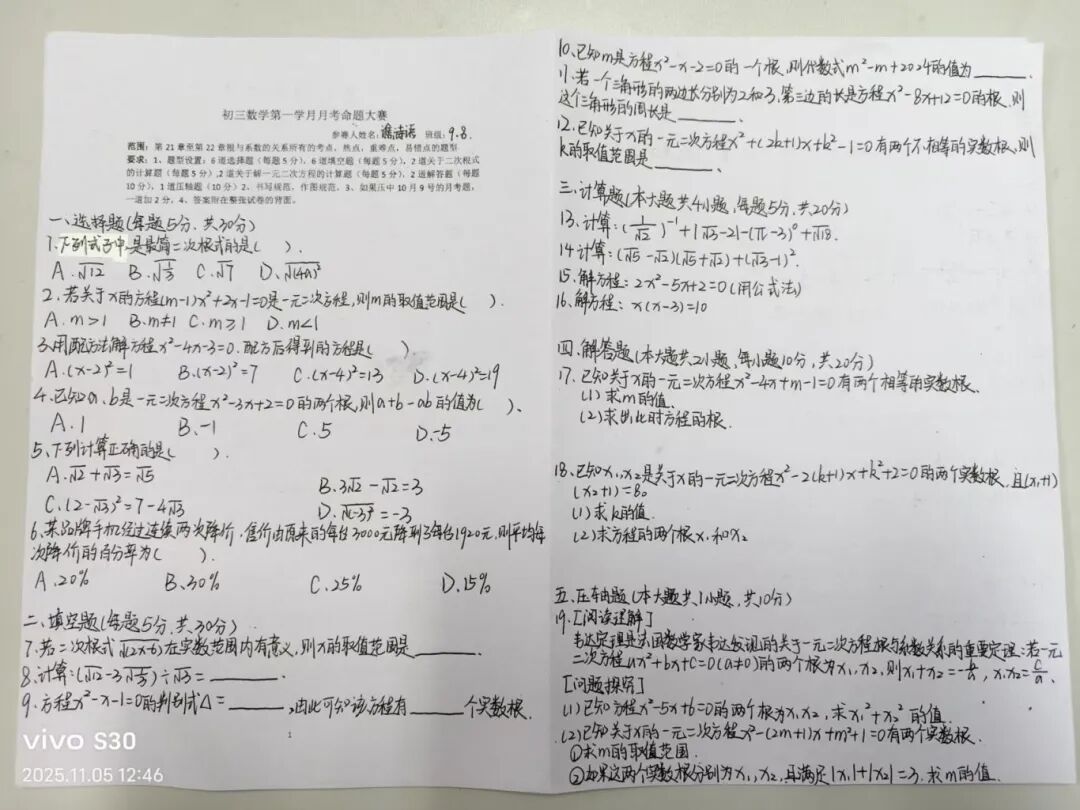 初三数学第一学月月考命题大赛
参赛人姓名: 班级: 9.8.
范围：第21章至第22章根与系数的关系所有的考点、热点、重难点、易错点的题型
要求：1、题型设置：6道选择题（每题5分），6道填空题（每题5分），2道关于二次根式
的计算题（每题5分），2道关于解一元二次方程的计算题（每题5分），2道解答题（每题
10分），1道压轴题（10分）2、书写规范，作图规范。3、如果压中10月9号的月考题，
一道加2分。4、答案附在整张试卷的背面。
一、选择题(每题5分,共30分)
1.下列式子中,是最简二次根式的是( ).
A.√12 B.√(1/3) C.√7 D.√(4a)²
2.若关于x的方程(m-1)x²+2x-1=0是一元二次方程,则m的取值范围是( ).
A.m>1 B.m≠1 C.m≥1 D.m<1
3.用配方法解方程x²-4x-3=0.配方后得到的方程是( )
A.(x-2)²=1 B.(x-2)²=7 C.(x-4)²=13 D.(x-4)²=19
4.已知a、b是一元二次方程x²-3x+2=0的两个根,则a+b-ab的值为( ).
A.1 B.-1 C.5 D.-5
5.下列计算正确的是( ).
A.√2+√3=√5
B.3√2-√2=3
C.(2-√3)²=7-4√3
D.√(-3)²=-3
6.某品牌手机经过连续两次降价,售价由原来的每台3000元降到了每台1920元,则平均每
次降价的百分率为( ).
A.20% B.30% C.25% D.15%
二、填空题(每题5分,共30分)
7.若二次根式√(2x-6)在实数范围内有意义,则x的取值范围是______.
8.计算:(√12-3√(1/3))÷√3=______.
9.方程x²-x-1=0的判别式Δ=______,由此可知该方程有______个实数根.
1
vivo S30
2025.11.05 12:46
10.已知m是方程x²-x-2=0的一个根,则代数式m²-m+2024的值为______.
11.若一个三角形的两边长分别为2和3,第三边的长是方程x²-8x+12=0的根,则
这个三角形的周长是______.
12.已知关于x的一元二次方程x²+(2k+1)x+k²-1=0有两个不相等的实数根,则
k的取值范围是______.
三、计算题(本大题共4小题,每题5分,共20分)
13.计算:(1/√2)⁻¹+|√3-2|-(π-3)⁰+√18.
14计算:(√5-√2)(√5+√2)+(√3-1)².
15.解方程:2x²-5x+2=0(用公式法)
16.解方程:x(x-3)=10
四.解答题(本大题共2小题,每小题10分,共20分)
17.已知关于x的一元二次方程x²-4x+m-1=0有两个相等的实数根.
(1)求m的值.
(2)求出此时方程的根.
18.已知x₁,x₂是关于x的一元二次方程x²-2(k+1)x+k²+2=0的两个实数根,且(x₁+1)
(x₂+1)=8。
(1)求k的值.
(2)求方程的两个根x₁和x₂
五.压轴题(本大题共1小题,共10分)
19.[阅读理解]
韦达定理是法国数学家韦达发现的关于一元二次方程根与系数关系的重要定理:若一元
二次方程ax²+bx+c=0(a≠0)的两个根为x₁,x₂,则x₁+x₂=-b/a,x₁x₂=c/a.
[问题探究]
(1)已知方程x²-5x+6=0的两个根为x₁,x₂,求x₁²+x₂²的值.
(2)已知关于x的一元二次方程x²-(2m+1)x+m²+1=0有两个实数根.
①求m的取值范围.
②如果这两个实数根分别为x₁,x₂,且满足|x₁|+|x₂|=3,求m的值.